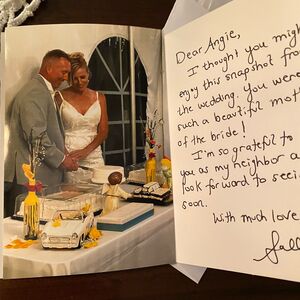 Dear Angie,
I thought you might
enjoy this snapshot from
the wedding. You were
such a beautiful
of the bride!
I'm so grateful to
you as my neighbor a
look forward to
soon.
With much love